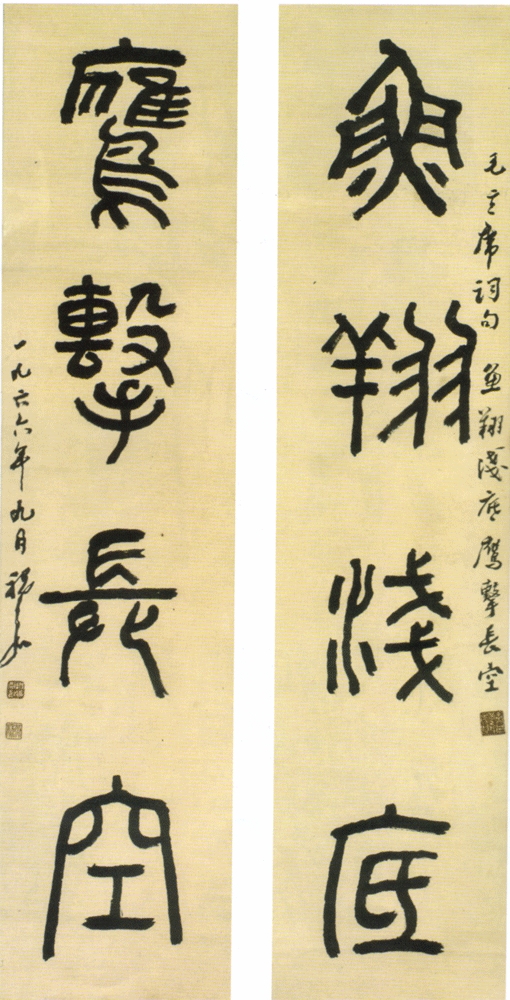 毛主席詞句 魚翔淺底鷹擊長空
魚翔淺底
鷹擊長空
一九六六年九月